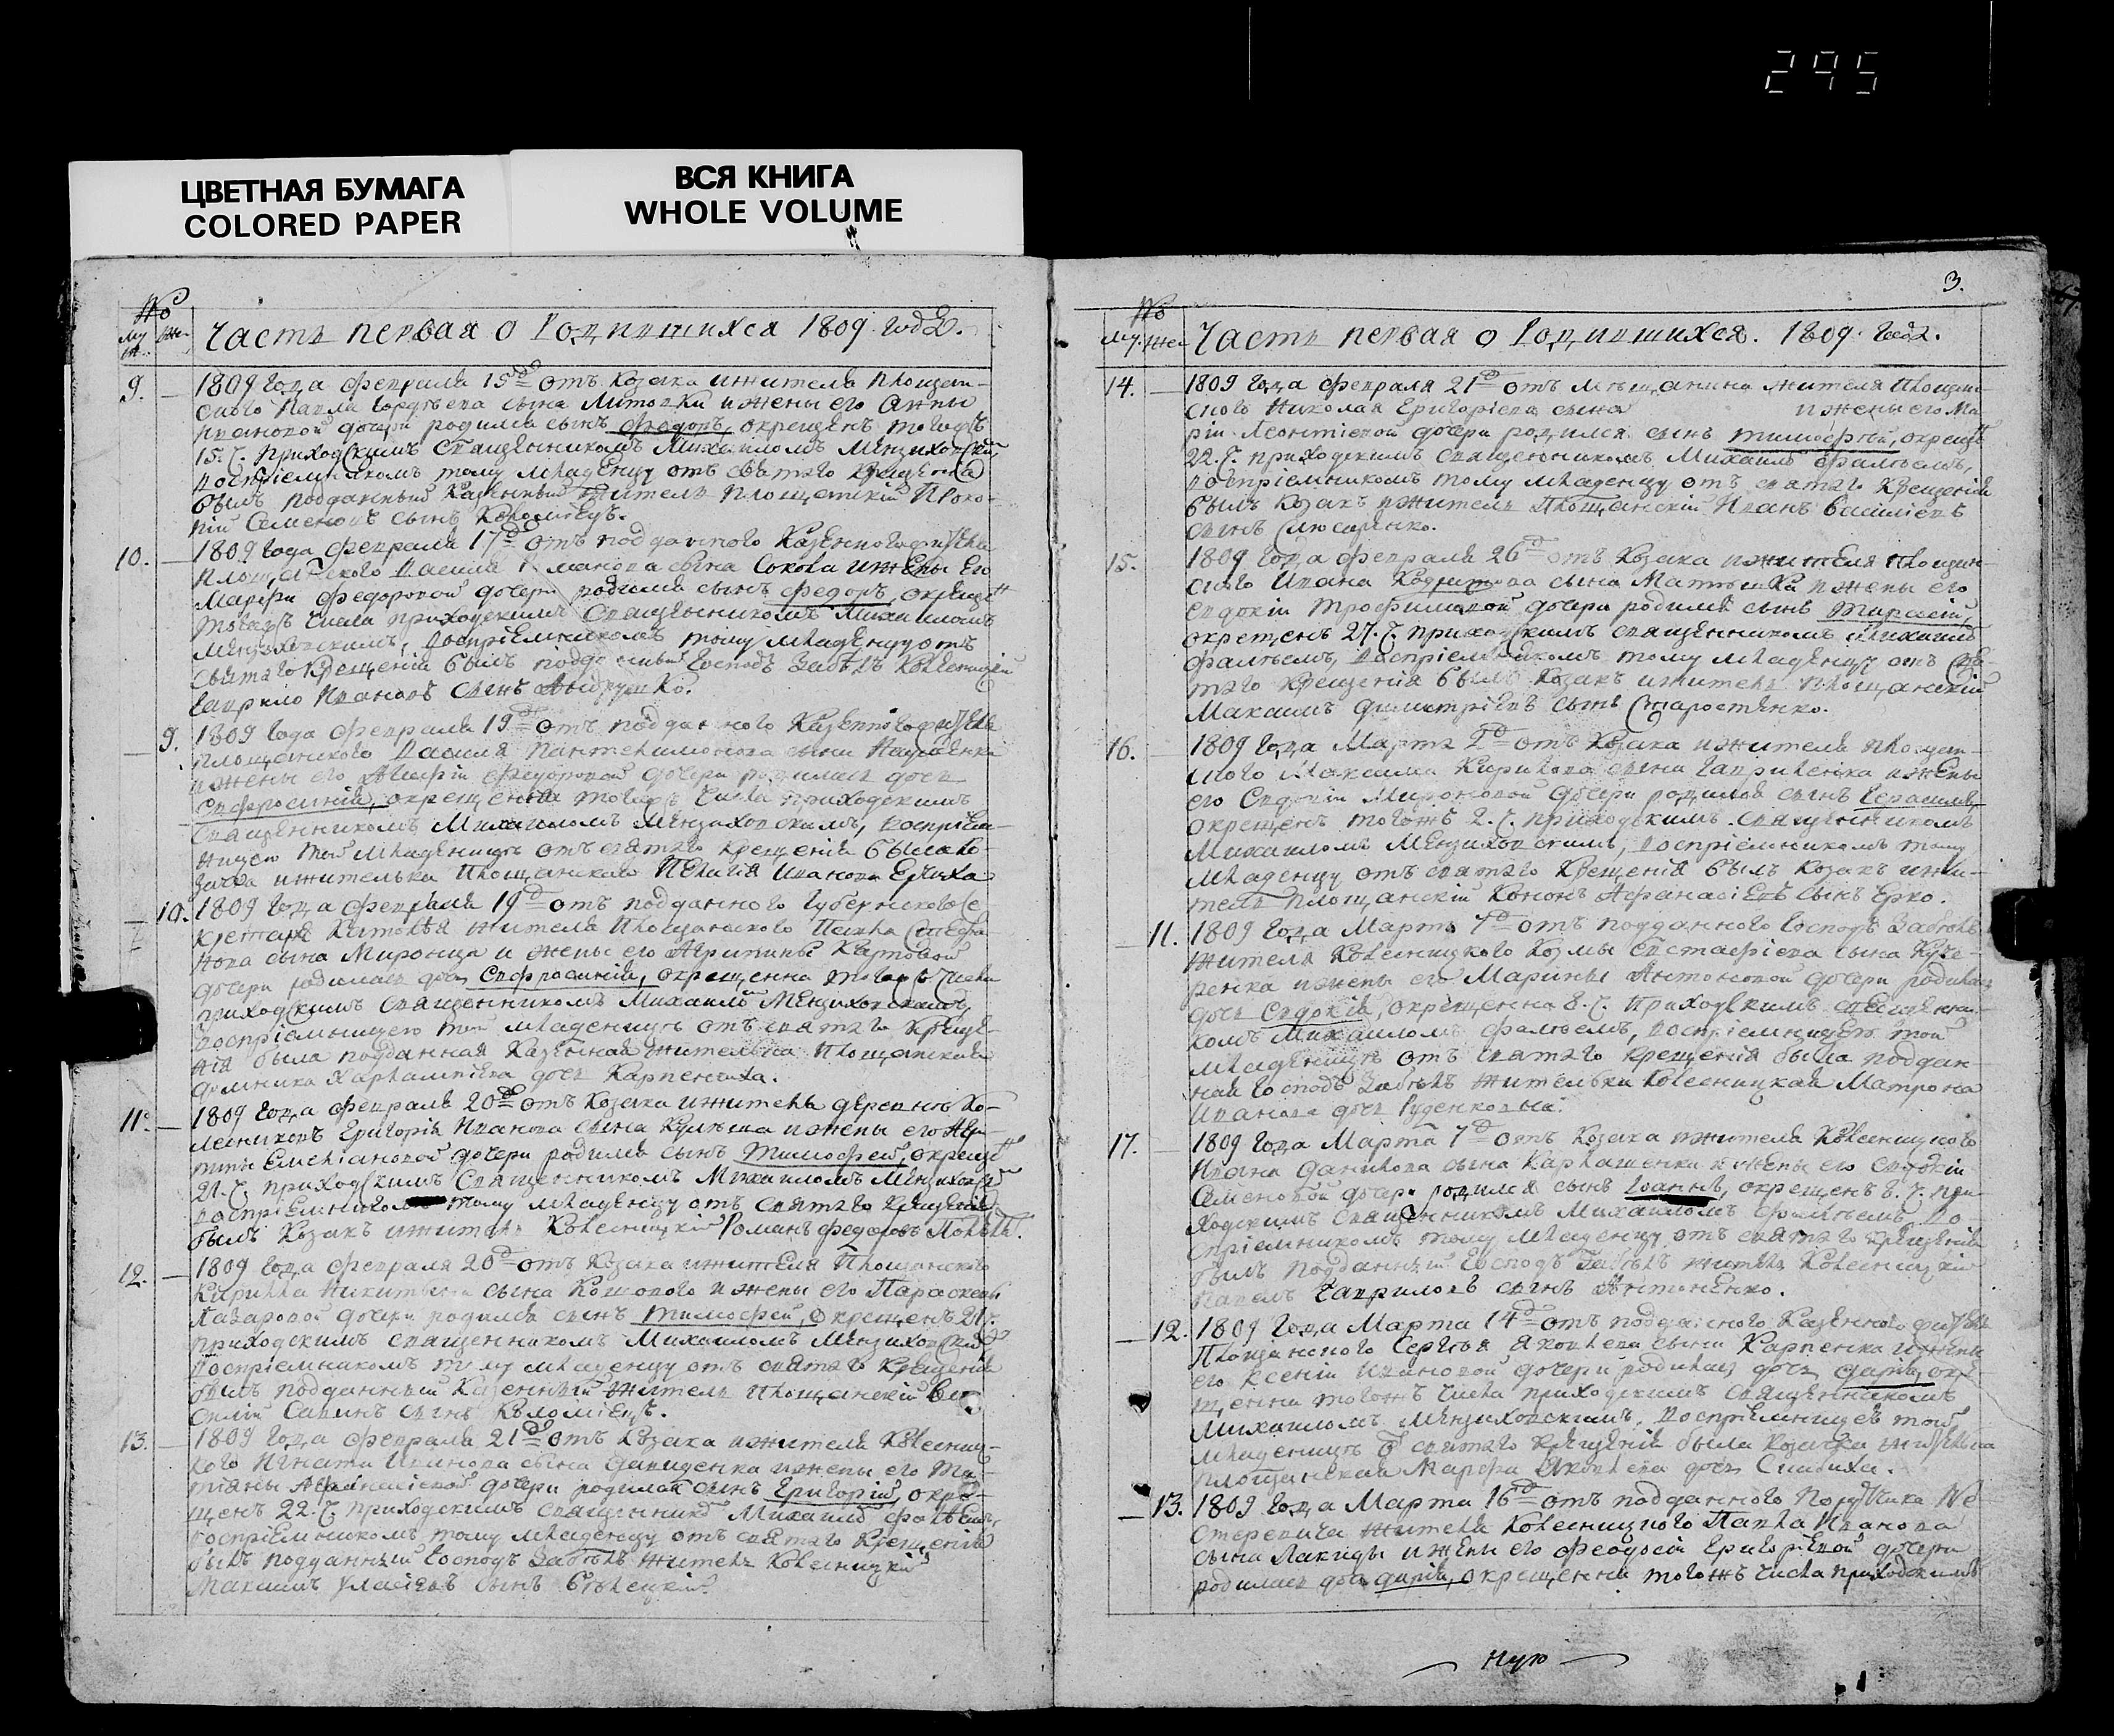 295
ЦВЕТНАЯ БУМАГА
COLORED PAPER
ВСЯ КНИГА
WHOLE VOLUME
№
Му Же
Часть первая о Родившихся 1809 года.
9. 1809 года февраля 15го отъ козака и жителя Площан-
ского Павла сына и жены его Анны
Ивановой дочери родился сынъ Феодоръ, окрещенъ тогожъ
15. ч. приходскимъ священникомъ Михаиломъ Мензиховскимъ
воспріемникомъ тому младенцу отъ святаго крещенія
былъ подданный казенный житель Площанскій Проко-
пій Семеновъ сынъ Коломіецъ.
10. 1809 года февраля 17го отъ подданного казенного жителя
Площанского Василя сына Сокола и жены его
Марфы Федоровой дочери родился сынъ Федоръ, окрещенъ
тогожъ числа приходскимъ священникомъ Михаиломъ
Мензиховскимъ, воспріемникомъ тому младенцу отъ
святаго крещенія былъ подданный господъ Забѣлъ Колесницкій
Гаврило Ивановъ сынъ Андрушко.
9. 1809 года февраля 19го отъ подданного казенного жителя
Площанского Василя Пантелимонова сына
и жены его Федоровой дочери родилась дочь
Евфросинія, окрещенна тогожъ числа приходскимъ
священникомъ Михаиломъ Мензиховскимъ, воспріем-
ницею той младеницѣ отъ святаго крещенія была ко-
зачка и жителька Площанская Пелагія Иванова
10. 1809 года февраля 19го отъ подданного Губернского се-
кретаря жителя Площанского Павла Стефа-
нова сына Миронца и жены его Агрипины Карповой
дочери родилась дочь Евфросинія, окрещенна тогожъ числа
приходскимъ священникомъ Михаиломъ Мензиховскимъ,
воспріемницею той младеницѣ отъ святаго креще-
нія была подданная казенная жителька Площанская
Домникія Харлампіева дочь Карпенчиха.
11. 1809 года февраля 20го отъ козака и жителя деревни Ко-
лесниковъ Григорія Иванова сына Кулѣша и жены его Агри-
пины Емеліановой дочери родился сынъ Тимофей, окрещенъ
21. ч. приходскимъ священникомъ Михаиломъ Мензиховскимъ
воспріемникомъ тому младенцу отъ святаго крещенія
былъ козакъ и житель Колесницкій Романъ Федоровъ
12. 1809 года февраля 20го отъ козака и жителя Площанского
Кирилла Никитина сына Кошового и жены его Параскевы
Лазаровой дочери родился сынъ Тимофей, окрещенъ 21 ч.
приходскимъ священникомъ Михаиломъ Мензиховскимъ
воспріемникомъ тому младенцу отъ святаго крещенія
былъ подданный казенный житель Площанскій Ва-
силій Савинъ сынъ Коломіецъ.
13. 1809 года февраля 21го отъ козака и жителя Колесниц-
кого Игната Иванова сына Давиденка и жены его Та-
тіяны Афанасіевой дочери родился сынъ Григорій, окре-
щенъ 22. ч. приходскимъ священникомъ Михаиломъ Фалѣемъ,
воспріемникомъ тому младенцу отъ святаго крещенія
былъ подданный господъ Забѣлъ житель Колесницкій
Максимъ Уласіевъ сынъ Бѣлецкій.
3.
№
Му. Же
Часть первая о Родившихся. 1809. года.
14. 1809 года февраля 21го отъ мѣщанина жителя Площан-
ского Николая Григоріева сына и жены его Ма-
ріи Леонтіевой дочери родился сынъ Тимофей, окрещенъ
22. ч. приходскимъ священникомъ Михаиломъ Фалѣемъ,
воспріемникомъ тому младенцу отъ святаго крещенія
былъ козакъ и житель Площанскій Иванъ Василіевъ
сынъ Слюсаренко.
15. 1809 года февраля 26го отъ козака и жителя Площан-
ского Ивана сына и жены его
Евдокіи Трофимовой дочери родился сынъ Тарасій,
окрещенъ 27. ч. приходскимъ священникомъ Михаиломъ
Фалѣемъ, воспріемникомъ тому младенцу отъ свя-
таго крещенія былъ козакъ и житель Площанскій
Максимъ Димитріевъ сынъ Старостенко.
16. 1809 года Марта 2го отъ козака и жителя Площан-
ского Максима Кирилова сына Гавриленка и жены
его Евдокіи Мироновой дочери родился сынъ Герасимъ,
окрещенъ тогожъ 2. ч. приходскимъ священникомъ
Михаиломъ Мензиховскимъ, воспріемникомъ тому
младенцу отъ святаго крещенія былъ козакъ и жи-
тель Площанскій Кононъ Афанасіевъ сынъ Ерко.
11. 1809 года Марта 7го отъ подданного господъ Забѣлъ
жителя Колесницкого Козмы Евстафіева сына Куче-
ренка и жены его Марины Антоновой дочери родилась
дочь Евдокія, окрещенна 8. ч. приходскимъ священни-
комъ Михаиломъ Фалѣемъ, воспріемницею той
младеницѣ отъ святаго крещенія была поддан-
ная господъ Забѣлъ жителька Колесницкая Матрона
Иванова дочь Руденковна.
17. 1809 года Марта 7го отъ козака и жителя Колесницкого
Ивана Данилова сына Карлашенка и жены его Евдокіи
Семеновой дочери родился сынъ Іоаннъ, окрещенъ 8. ч. при-
ходскимъ священникомъ Михаиломъ Фалѣемъ, во-
спріемникомъ тому младенцу отъ святаго крещенія
былъ подданный господъ Забѣлъ житель Колесницкій
Павелъ Гавриловъ сынъ Антоненко.
12. 1809 года Марта 14го отъ подданного казенного жителя
Площанского Сергѣя Яковлева сына Карпенка и жены
его Ксеніи Ивановой дочери родилась дочь Дарія, окре-
щенна тогожъ числа приходскимъ священникомъ
Михаиломъ Мензиховскимъ, воспріемницею той
младеницѣ отъ святаго крещенія была козачка жителька
Площанская Марфа Яковлева дочь
13. 1809 года Марта 16го отъ подданного Поручика Не-
стеревича жителя Колесницкого Павла Иванова
сына Лакиды и жены его Феодосіи Григоріевой дочери
родилась дочь Дарія, окрещенна тогожъ числа приходскимъ